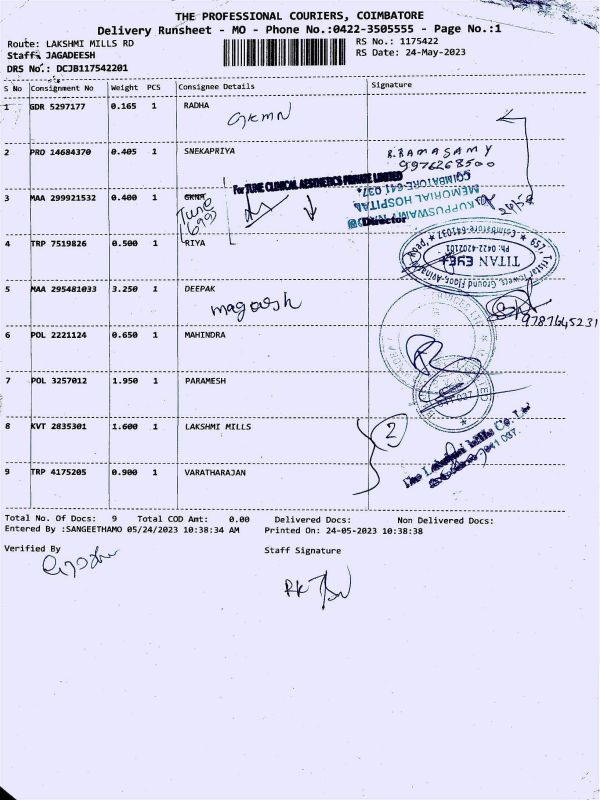 THE PROFESSIONAL COURIERS, COIMBATORE
Delivery Runsheet - MO - Phone No.:0422-3505555 - Page No.:1
Route: LAKSHMI MILLS RD
RS No.: 1175422
Staff: JAGADEESH
RS Date: 24-May-2023
DRS No.: DCJB117542201
S No Consignment No Weight PCS Consignee Details Signature
1 GDR 5297177 0.165 1 RADHA
GKMN
2 PRD 14684370 0.405 1 SNEKAPRIYA
R.RAMASAMY
9976268500
For TUNE CLINICAL AESTHETICS PRIVATE LIMITED
COIMBATORE-641 037.
3 MAA 299921532 0.400 1 GKNM
Tune
KUPPUSWAMY
MEMORIAL HOSPITAL
Director
4 TRP 7519826 0.500 1 RIYA
TITAN EYE+
Ph: 0422-4202101
5 MAA 295481033 3.250 1 DEEPAK
9787645231
6 POL 2221124 0.650 1 MAHINDRA
7 POL 3257012 1.950 1 PARAMESH
8 KVT 2835301 1.600 1 LAKSHMI MILLS
2
The Lakshmi Mills Co. Ltd
9 TRP 4175205 0.900 1 VARATHARAJAN
Total No. Of Docs: 9 Total COD Amt: 0.00 Delivered Docs: Non Delivered Docs:
Entered By :SANGEETHAMO 05/24/2023 10:38:34 AM Printed On: 24-05-2023 10:38:38
Verified By Staff Signature